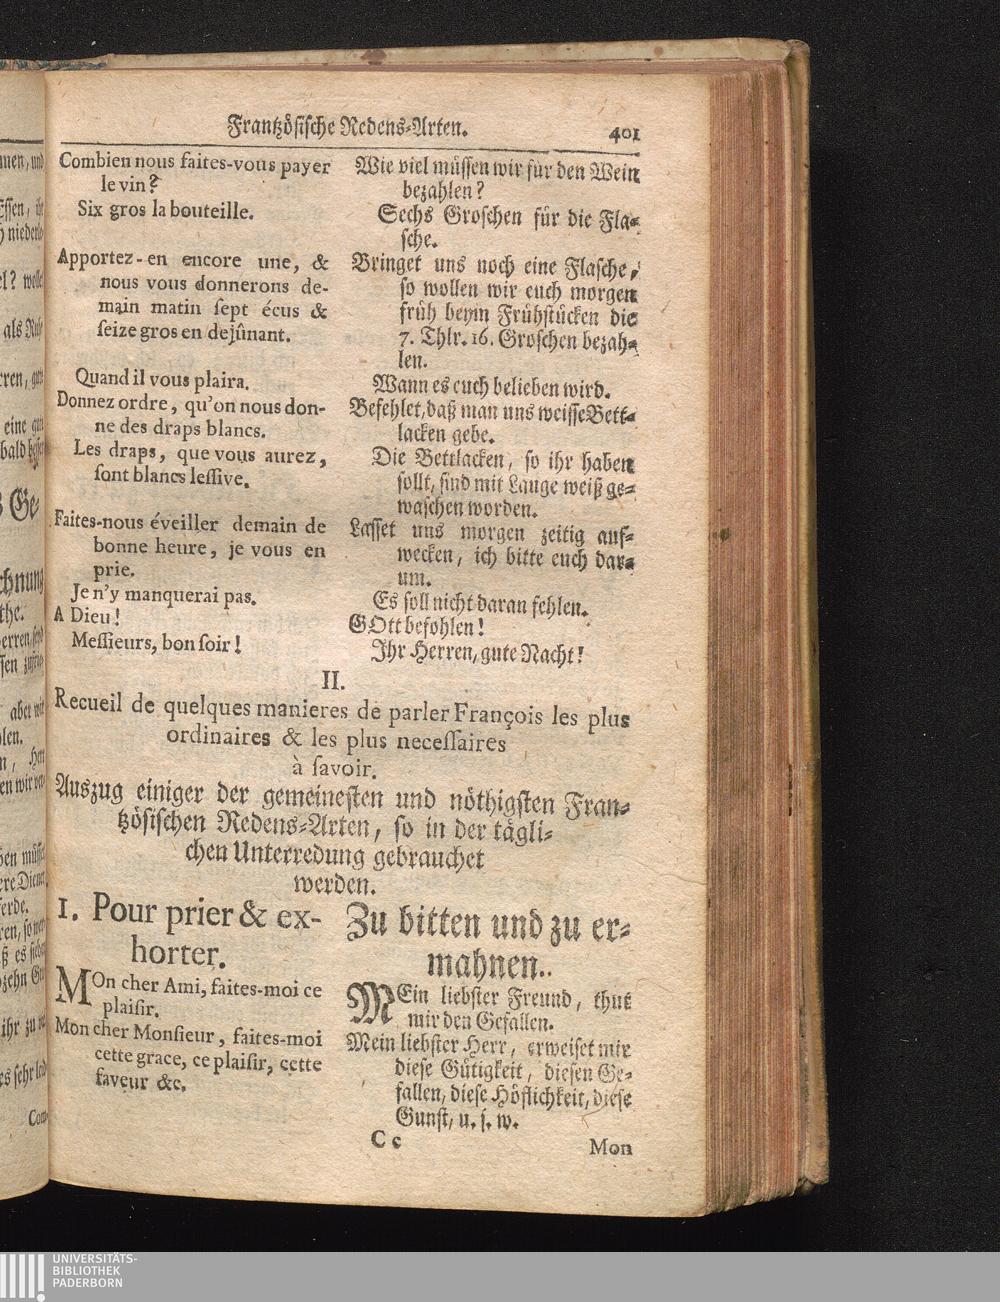 Frantzösische Redens-Arten. 401
Combien nous faites-vous payer
le vin?
Six gros la bouteille.
Apportez-en encore une, &
nous vous donnerons de-
main matin ſept écus &
ſeize gros en dejûnant.
Quand il vous plaira.
Donnez ordre, qu'on nous don-
ne des draps blancs.
Les draps, que vous aurez,
ſont blancs leſſive.
Faites-nous éveiller demain de
bonne heure, je vous en
prie.
Je n'y manquerai pas.
A Dieu!
Meſſieurs, bon ſoir!
Wie viel müſſen wir für den Wein
bezahlen?
Sechs Groſchen für die Fla-
ſche.
Bringet uns noch eine Flaſche,
ſo wollen wir euch morgen
früh beym Frühſtücken die
7. Thlr. 16. Groſchen bezah-
len.
Wann es euch belieben wird.
Befehlet, daß man uns weiſſe Bett-
lacken gebe.
Die Bettlacken, ſo ihr haben
ſollt, ſind mit Lauge weiß ge-
waſchen worden.
Laſſet uns morgen zeitig auf-
wecken, ich bitte euch dar-
um.
Es ſoll nicht daran fehlen.
GOtt befohlen!
Ihr Herren, gute Nacht!
II.
Recueil de quelques manieres de parler François les plus
ordinaires & les plus neceſſaires
à ſavoir.
Auszug einiger der gemeineſten und nöthigſten Fran-
tzöſiſchen Redens-Arten, ſo in der tägli-
chen Unterredung gebrauchet
werden.
1. Pour prier & ex-
horter.
MOn cher Ami, faites-moi ce
plaiſir.
Mon cher Monſieur, faites-moi
cette grace, ce plaiſir, cette
faveur &c.
Zu bitten und zu er-
mahnen.
MEin liebſter Freund, thut
mir den Gefallen.
Mein liebſter Herr, erweiſet mir
dieſe Gütigkeit, dieſen Ge-
fallen, dieſe Höflichkeit, dieſe
Gunſt, u. ſ. w.
Cc Mon
UNIVERSITÄTS-
BIBLIOTHEK
PADERBORN